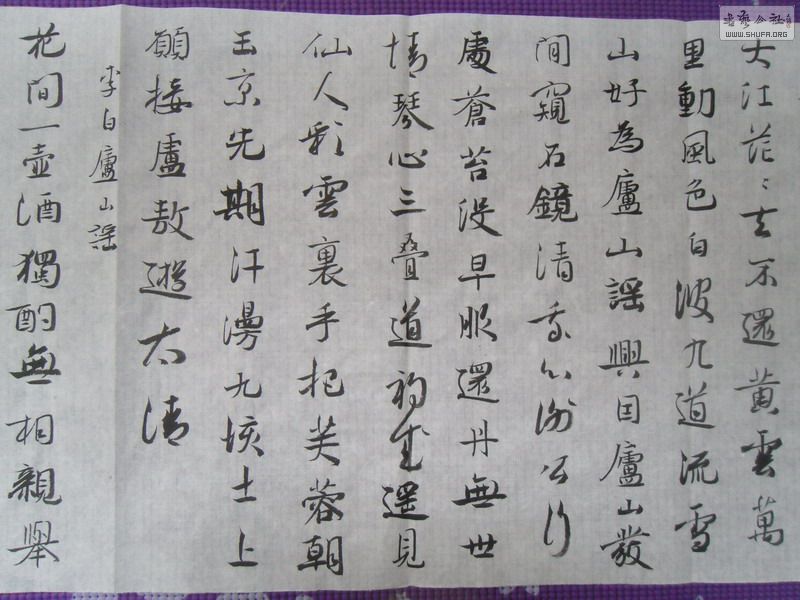 大江茫〻去不還黃雲萬
里動風色白波九道流雪
山好為廬山謠興因廬山發
閒窺石鏡清我心謝公行
處蒼苔沒早服還丹無世
情琴心三叠道初成遙見
仙人彩雲裏手把芙蓉朝
玉京先期汗漫九垓士上
願接盧敖遊太清
李白廬山謠
花間一壺酒獨酌無相親舉
書藝公社
WWW.SHUFA.ORG